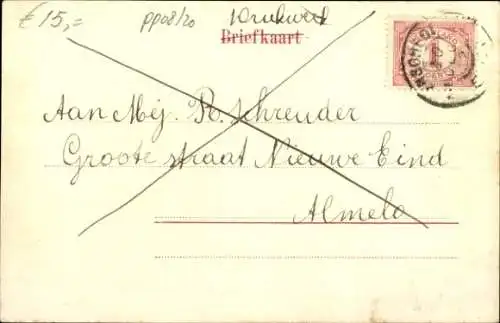 € 15,= pp08/20 Drukwerk
Briefkaart
1
Aan Mej. R. Schreuder
Groote straat Nieuwe Eind
Almelo